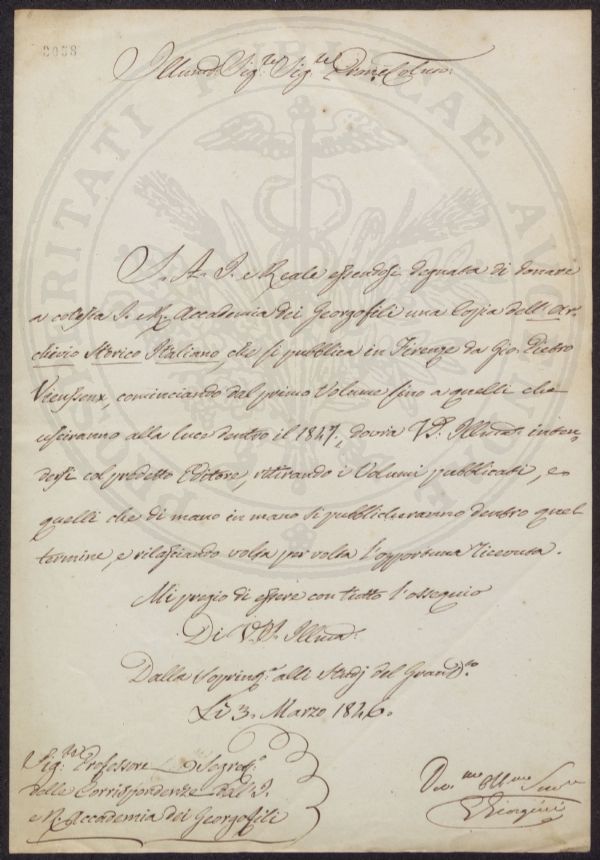 3038
Illmo. Sigre. Sigre. Prone. Colmo.
S. A. I. e Reale essendosi degnata di donare
a cotesta I. e R. Accademia dei Georgofili una Copia dell'Ar-
chivio Storico Italiano, che si pubblica in Firenze da Gio. Pietro
Vieusseux, cominciando dal primo Volume fino a quelli che
usciranno alla luce dentro il 1847., dovrà V.S. Illma. inten-
dersi col predetto Editore, ritirando i Volumi pubblicati, e
quelli che di mano in mano si pubblicheranno dentro quel
termine, e rilasciando volta per volta l'opportuna ricevuta.
Mi pregio di essere con tutto l'ossequio
Di V.S. Illma.
Dalla Soprindza. alli Studj del Granda.
Li 3. Marzo 1846.
Sigre. Professore Segreto.
delle Corrispondenze dell'I.
e R. Accademia dei Georgofili
Devmo. Obbmo. Serve.
Giorgini
PROSPERITATI PUBLICAE AUGENDAE